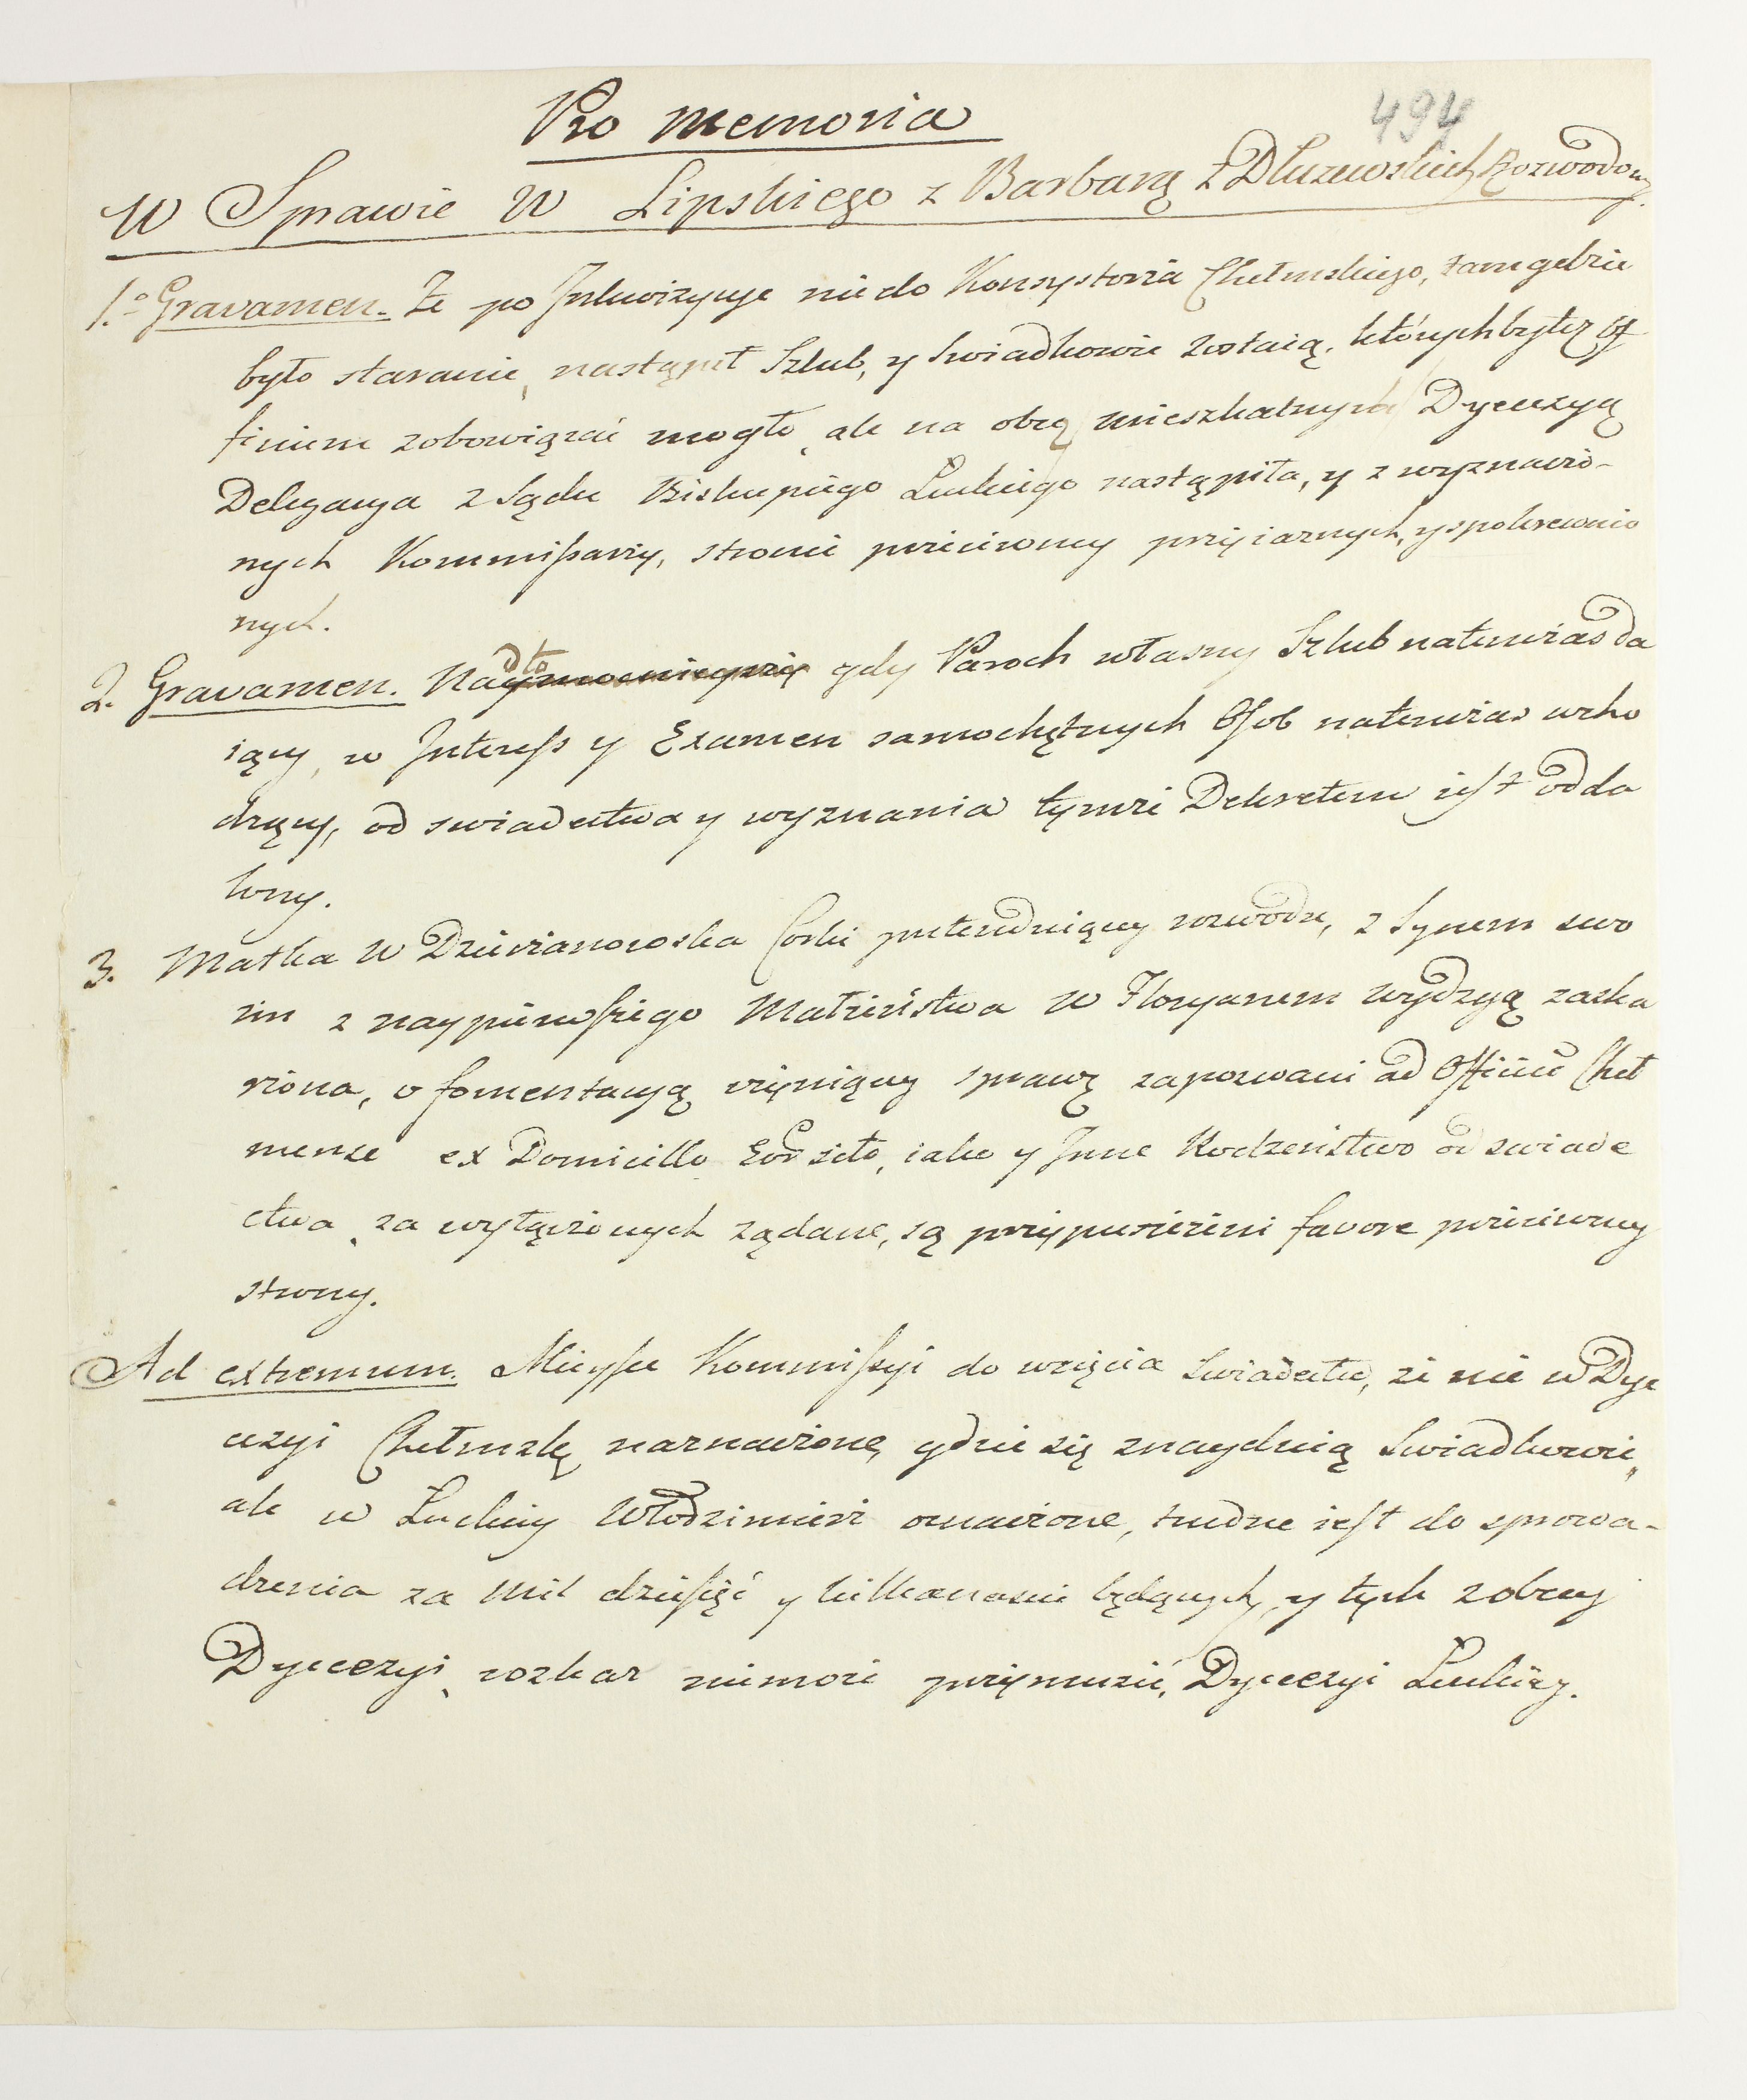 494
Pro memoria
W Sprawie W Lipskiego z Barbarą z Dłuzewskich Rozwodowy.
1.o Gravamen. Ze po Inkwizycye nie do Konsystorza Chełmskiego, tam gdzie
było staranie, nastąpił Szlub, y Swiadkowie zostaią, których byłez Of
ficium zobowiązać mogło, ale na obcą mieszkalnych Dyecezyą
Delegacya z Sądu Biskupiego Łuckiego nastąpiła, y z wyznaczo-
nych Kommissarzy, stronie przeciwney przyiaznych, y spokrewnio
nych.
2. Gravamen. Nadto gdy Paroch własny Szlub natenczas da
iący, w Interess y Examen samochętnych Osob natenczas wcho
dzący, od swiadectwa y wyznania tymże Dekretem iest odda
lony.
3. Matka W Dzierzanowska Corki pretenduiącey rozwodu, z Synem swo
im z naypierwszego Małżeństwa W Floryanem zaska
rżona, o fomentacyą czyniącey sprawę zapozwani ad Officiū Cheł
mense ex Domicilio, iako y Inne Rodzeństwo od swiade
ctwa, za wyłączonych żądane, są przypuszczeni favore przeciwney
strony.
Ad extremum. Mieysce Kommissyi do wzięcia Swiadectw, że nie w Dye
cezyi Chełmskę naznaczone, gdzie się znayduią Swiadkowie,
ale w Łuckiey Włodzimierz oznaczone, trudne iest do sprowa-
dzenia za mil dziesięć y kilkanascie będących, y tych z obcey
Dyecezyi, rozkaz niemoże przymusić, Dyecezyi Łuckiey.